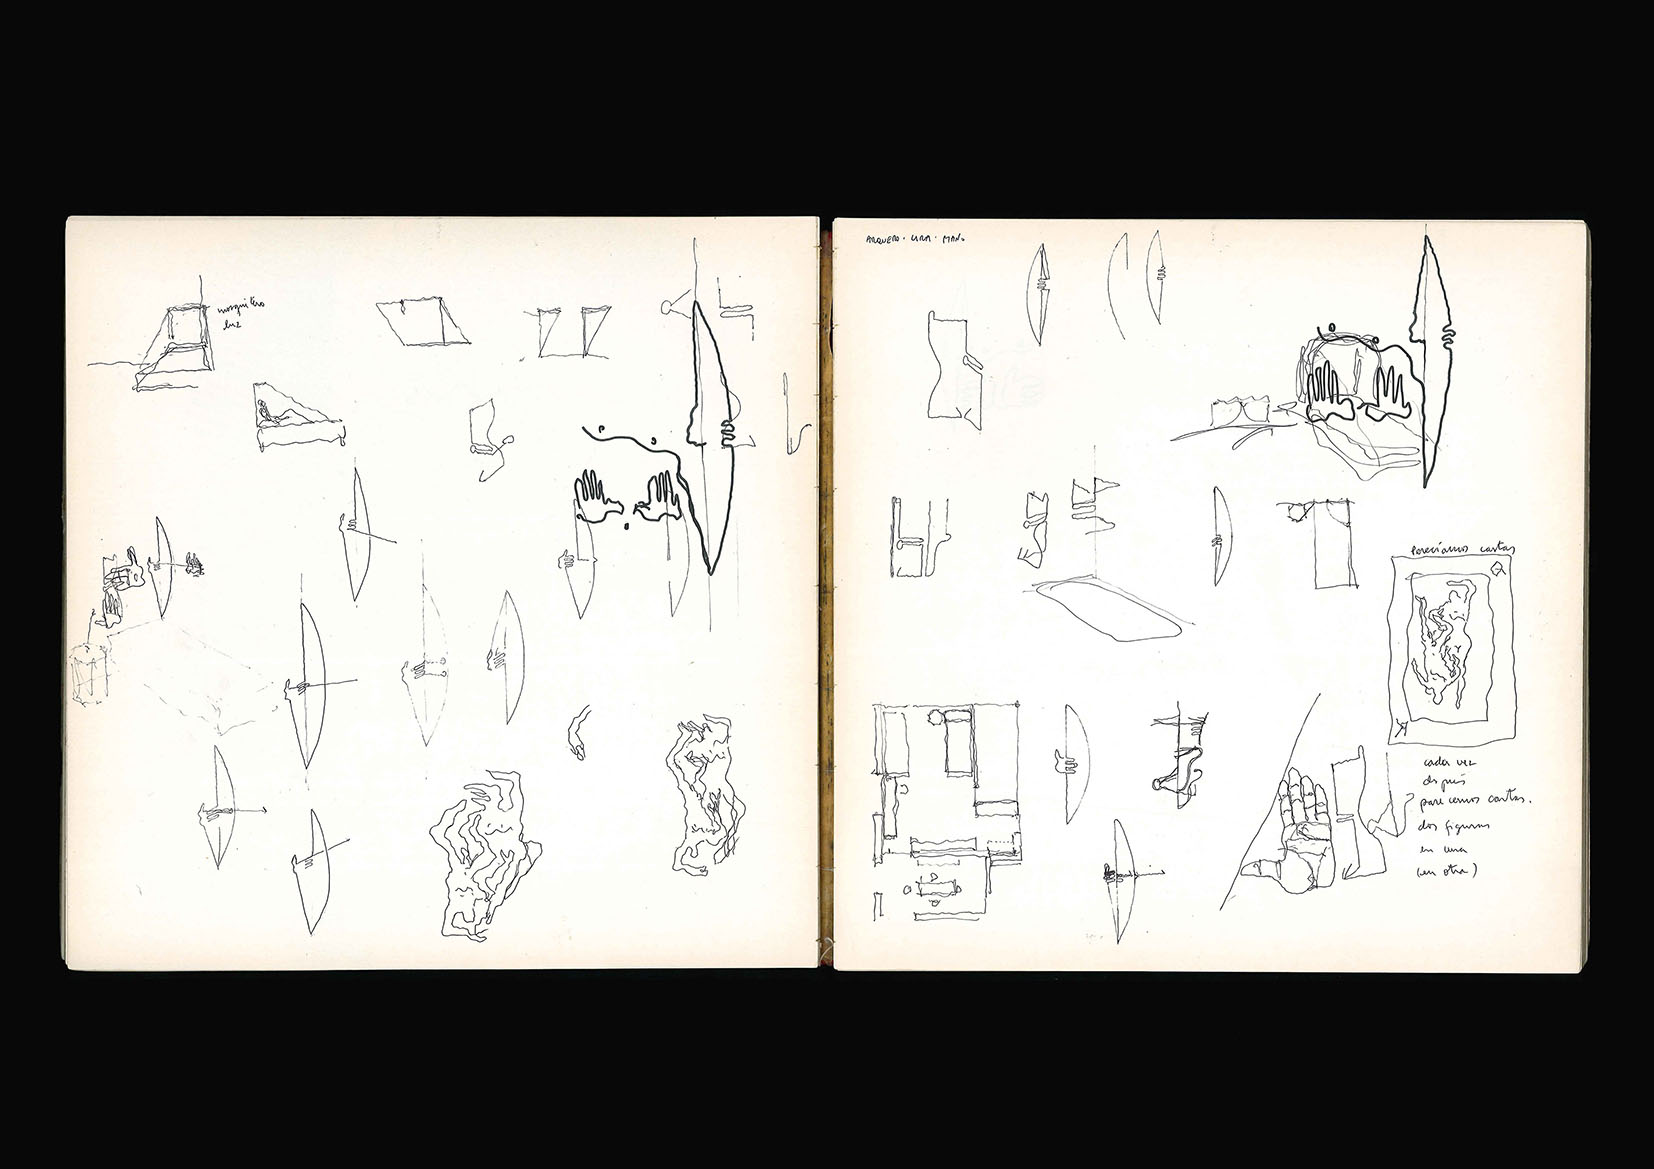 mosquitero
luz
ARQUERO · LIRA · MANO
Parecíamos cartas
cada vez
después
parecemos cartas.
dos figuras
en una
(en otra)